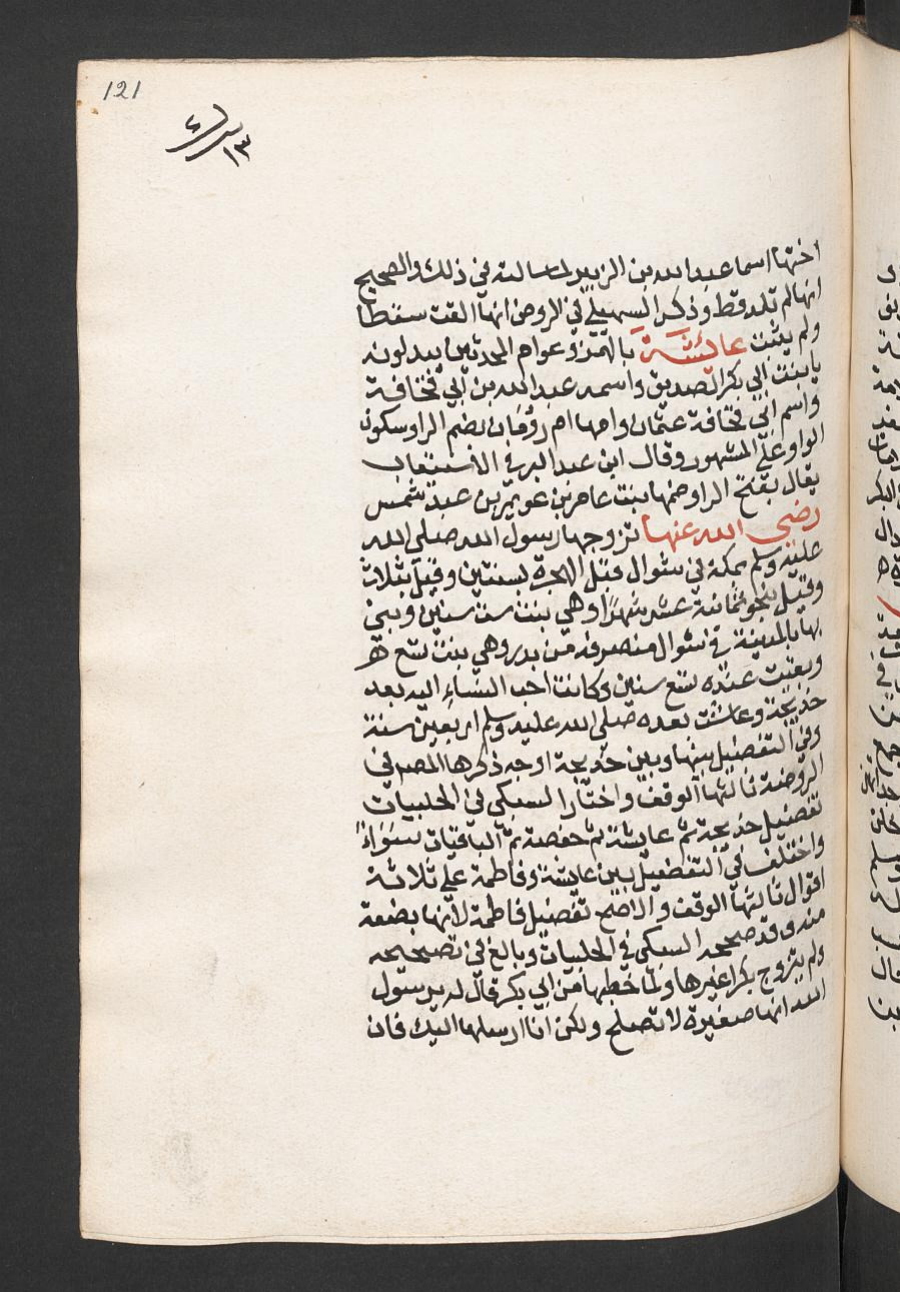 121
اختها اسما عبد الله بن الزبير لما سالته في ذلك والصحيح
انها لم تلد قط وذكر السهيلي في الروض انها القت سقطا
ولم يثبت عائشة بالهمز وعوام المحدثين يبدلونه
يا بنت ابي بكر الصديق واسمه عبد الله بن ابي قحافة
واسم ابي قحافة عثمان وامها ام رومان بضم الرا وسكون
الواو على المشهور وقال ابن عبد البر في الاستيعاب
يقال بفتح الرا وضمها بنت عامر بن عويمر بن عبد شمس
رضي الله عنها تزوجها رسول الله صلى الله
عليه وسلم بمكة في شوال قبل الهجرة بسنتين وقيل بثلاث
وقيل بنحو ثمانية عشر شهرا وهي بنت ست سنين وبنى
بها بالمدينة في شوال منصرفه من بدر وهي بنت تسع
وبقيت عنده تسع سنين وكانت احب النساء اليه بعد
خديجة وعاشت بعده صلى الله عليه وسلم اربعين سنة
وفي التفضيل بينها وبين خديجة اوجه ذكرها المصـ في
الروضة ثالثها الوقف واختار السبكي في الحلبيات
تفضيل خديجة ثم عايشة ثم حفصة ثم الباقيات سواء
واختلف في التفضيل بين عايشة وفاطمة على ثلاثة
اقوال ثالثها الوقف والاصح تفضيل فاطمة لانها بضعة
منه وقد صححه السبكي في الحلبيات وبالغ في تصحيحه
ولم يتزوج بكرا غيرها ولما خطبها من ابي بكر قال له يرسول
الله انها صغيرة لا تصلح ولكن انا ارسلها اليك فان